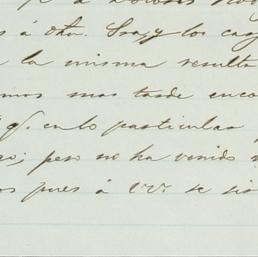 s á otro. Trag y los cag
la misma resulta
mos mas tarde enco
q. en lo particular
ro; pero no ha venido
os pues á VV. se si